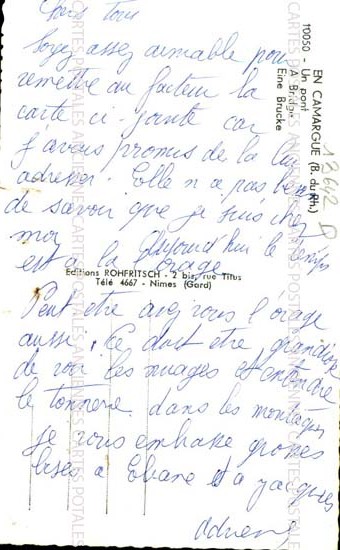 Chers tous
Soyez assez aimable pour
remettre au facteur la
carte ci-jointe car
j'avais promis de la lui
adresser. Elle n a pas besoin
de savoir que je suis chez
moi. Aujourd'hui le temps
est à la l'orage
Peut être avez vous l'orage
aussi. Ce doit être grandiose
de voir les nuages et entendre
le tonnerre dans les montagnes
je vous embrasse grosses
bises à Eliane et à Jacques
EN CAMARGUE (B. du Rh.)
10050 - Un pont
A Bridge
Eine Brucke
Editions ROHFRITSCH - 2 bis, rue Titus
Télé 4667 - Nimes (Gard)
CARTES POSTALES ANCIENNES